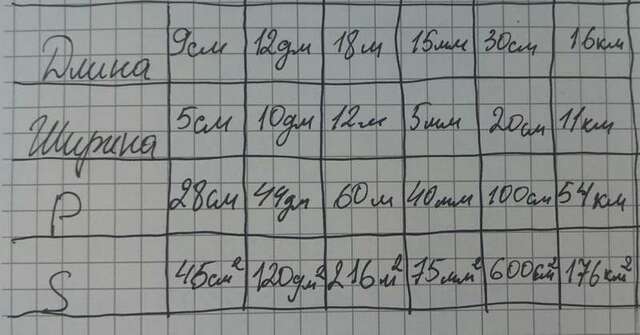 Длина 9см 12дм 18м 15мм 30см 16км
Ширина 5см 10дм 12м 5мм 20см 11км
P 28см 44дм 60м 40мм 100см 54км
S 45см² 120дм² 216м² 75мм² 600см² 176км²